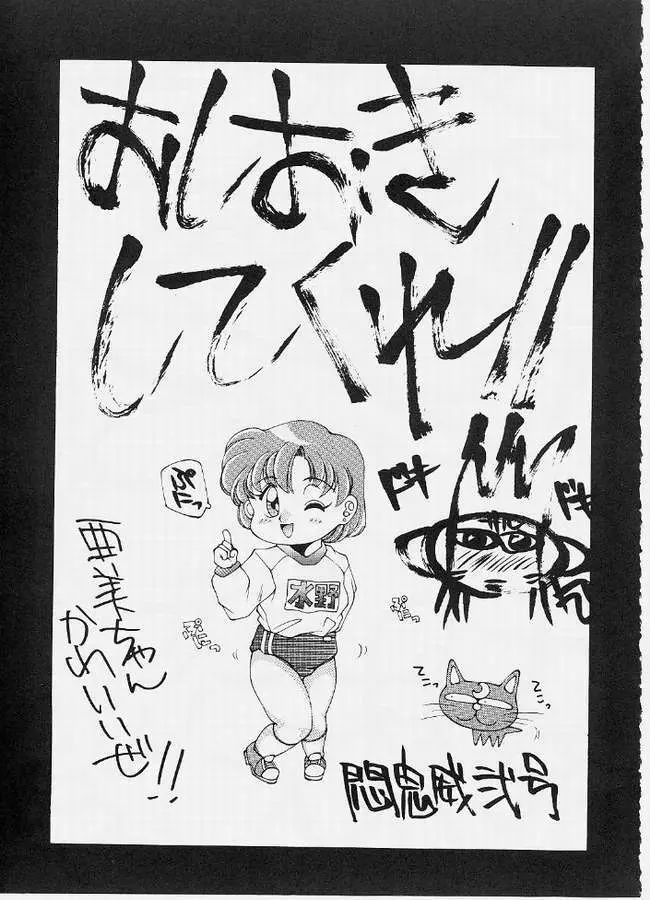 おしおき
してくれ!!
ドキ
ドキ
水野
亜美ちゃん
かわいいぜ!!
悶鬼威弐号